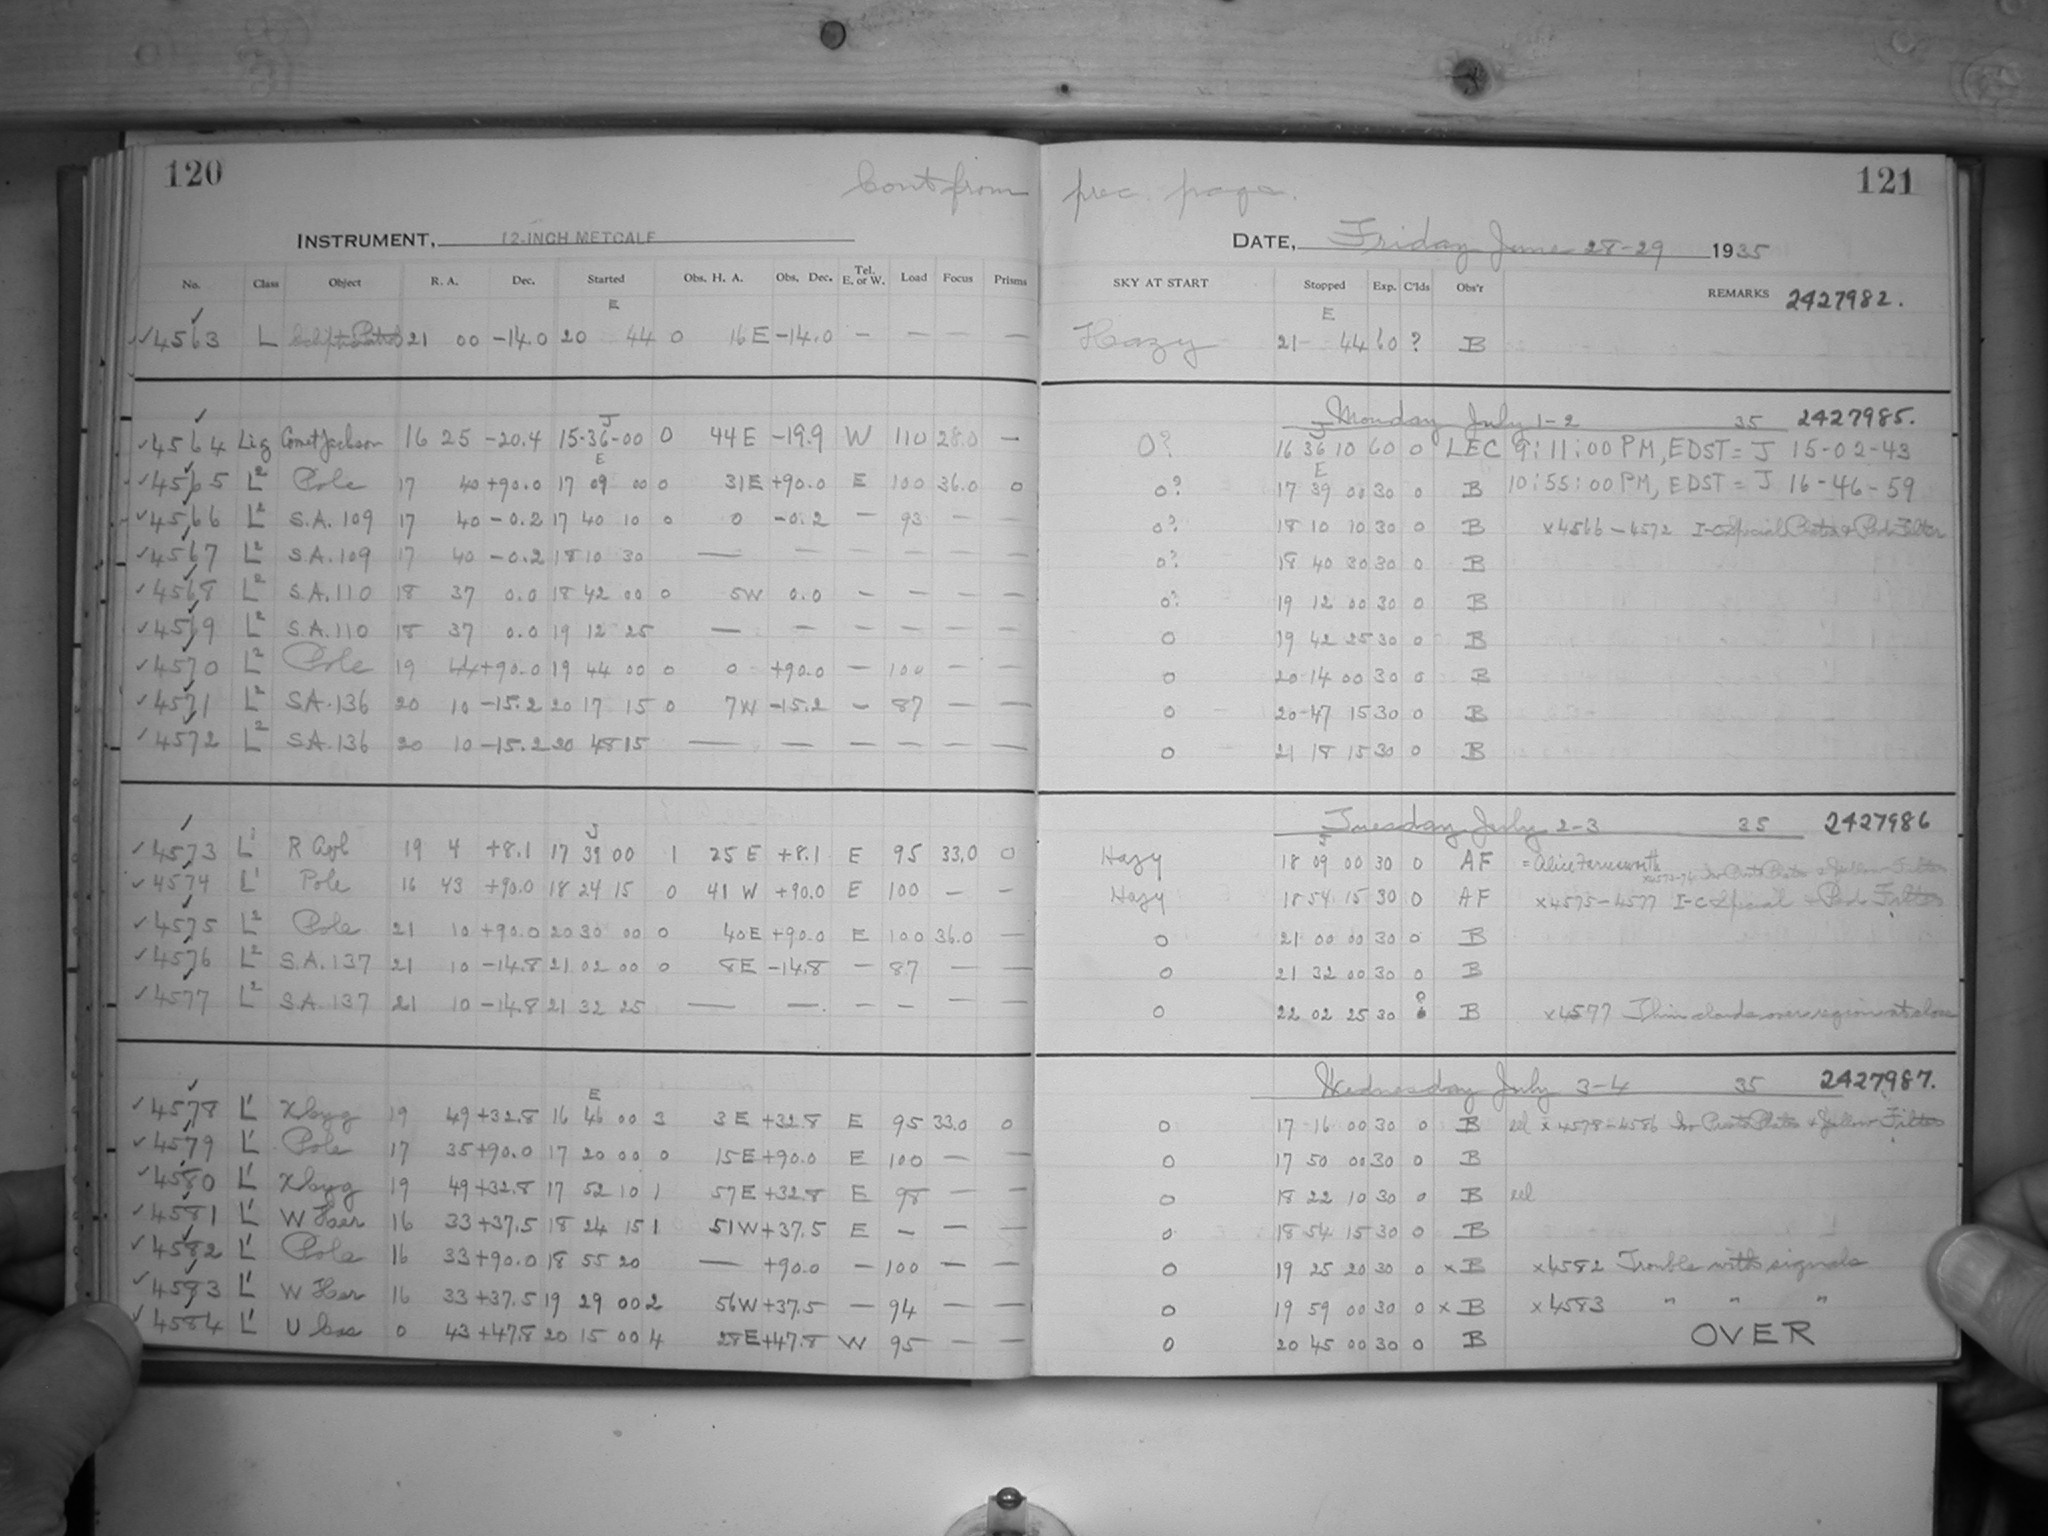 120
Cont from prec. page.
121
INSTRUMENT, 12-INCH METCALF
DATE, Friday June 28-29 1935
No. Class Object R. A. Dec. Started Obs. H. A. Obs. Dec. Tel. E. or W. Load Focus Prisms SKY AT START Stopped Exp. C'lds Obs'r REMARKS 2427982.
E E
✓4563 L 21 00 -14.0 20 44 0 16 E -14.0 — — — — Hazy 21 44 60 ? B
Monday July 1-2 35 2427985.
J J
✓4564 Lig Comet Jackson 16 25 -20.4 15-36-00 0 44 E -19.9 W 110 28.0 — 0? 16 36 10 60 0 LEC 9:11:00 PM, EDST = J 15-02-43
E E
✓4565 L2 Pole 17 40 +90.0 17 09 00 0 31E +90.0 E 100 36.0 0 0? 17 39 00 30 0 B 10:55:00 PM, EDST = J 16-46-59
✓4566 L2 S.A. 109 17 40 -0.2 17 40 10 0 0 -0.2 — 93 — — 0? 18 10 10 30 0 B x4566-4572 I-C Special Plates + Red Filter
✓4567 L2 S.A. 109 17 40 -0.2 18 10 30 — — — — — — 0? 18 40 30 30 0 B
✓4568 L2 S.A. 110 18 37 0.0 18 42 00 0 5W 0.0 — — — — 0? 19 12 00 30 0 B
✓4569 L2 S.A. 110 18 37 0.0 19 12 25 — — — — — — 0 19 42 25 30 0 B
✓4570 L2 Pole 19 44 +90.0 19 44 00 0 0 +90.0 — 100 — — 0 20 14 00 30 0 B
✓4571 L2 S.A. 136 20 10 -15.2 20 17 15 0 7W -15.2 — 87 — — 0 20-47 15 30 0 B
✓4572 L2 S.A. 136 20 10 -15.2 20 48 15 — — — — — — 0 21 18 15 30 0 B
Tuesday July 2-3 35 2427986
J J
✓4573 L1 R Aql 19 4 +8.1 17 39 00 1 25 E +8.1 E 95 33.0 0 Hazy 18 09 00 30 0 AF = Alice Farnsworth x4573-74 Iso Presto Plates + Yellow Filter
✓4574 L1 Pole 16 43 +90.0 18 24 15 0 41 W +90.0 E 100 — — Hazy 18 54 15 30 0 AF x4575-4577 I-C Special + Red Filter
✓4575 L2 Pole 21 10 +90.0 20 30 00 0 40E +90.0 E 100 36.0 — 0 21 00 00 30 0 B
✓4576 L2 S.A. 137 21 10 -14.8 21 02 00 0 8E -14.8 — 87 — — 0 21 32 00 30 0 B
✓4577 L2 S.A. 137 21 10 -14.8 21 32 25 — — — — — — 0 22 02 25 30 B x4577 Thin clouds over region at close
Wednesday July 3-4 35 2427987.
E
✓4578 L1 X Cyg 19 49 +32.8 16 46 00 3 3 E +32.8 E 95 33.0 0 0 17 16 00 30 0 B x4578-4586 Iso Presto Plates + Yellow Filter
✓4579 L1 Pole 17 35 +90.0 17 20 00 0 15E +90.0 E 100 — — 0 17 50 00 30 0 B
✓4580 L1 X Cyg 19 49 +32.8 17 52 10 1 57E +32.8 E 98 — — 0 18 22 10 30 0 B
✓4581 L1 W Her 16 33 +37.5 18 24 15 1 51W +37.5 E — — — 0 18 54 15 30 0 B
✓4582 L1 Pole 16 33 +90.0 18 55 20 — +90.0 — 100 — — 0 19 25 20 30 0 x B x4582 Trouble with signals
✓4583 L1 W Her 16 33 +37.5 19 29 00 2 56W +37.5 — 94 — — 0 19 59 00 30 0 x B x4583 " " "
✓4584 L1 U Cas 0 43 +47.8 20 15 00 4 28E +47.8 W 95 — — 0 20 45 00 30 0 B OVER